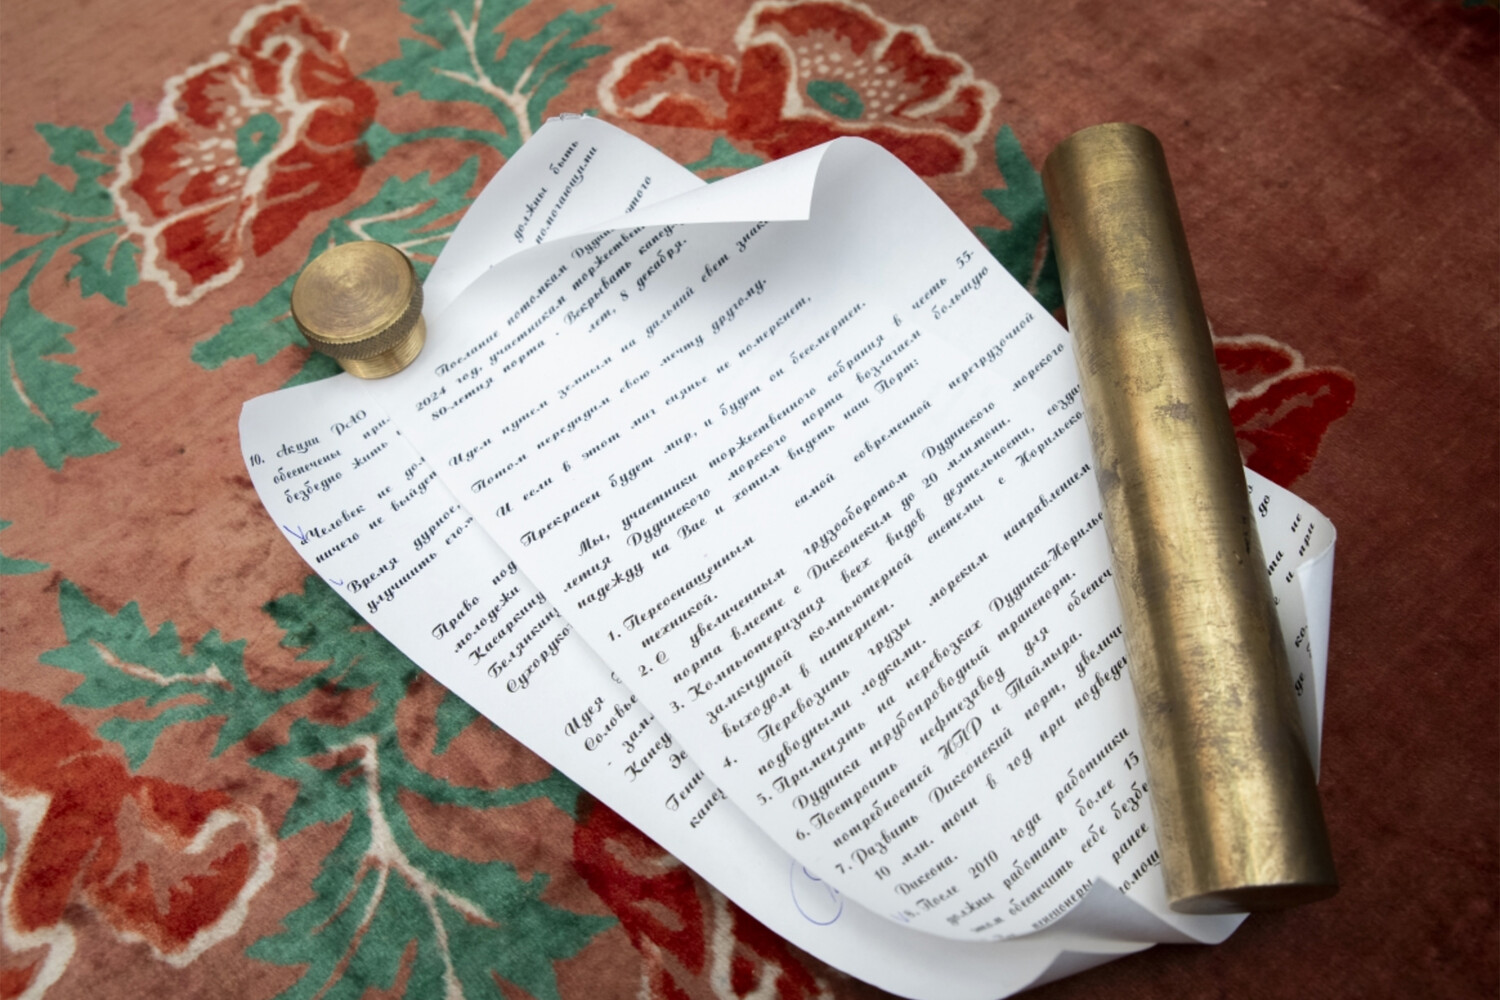 должны быть
помогающими
этого
Послание потомкам Дудин
2024 год, участникам торжествен
80-летия порта. Вскрывать капсу
лет, 8 декабря.
Идем путем земным на дальний свет знак
Потом передадим свою мечту другому.
И если в этот миг сиянье не померкнет,
Прекрасен будет мир, и будет он бессмертен.
Мы, участники торжественного собрания в честь 55-
летия Дудинского морского порта возлагаем большую
надежду на Вас и хотим видеть наш Порт:
1. Переоснащенным самой современной перегрузочной
техникой.
2. С увеличенным грузооборотом Дудинского морского
порта вместе с Диксонским до 20 млн.тонн.
3. Компьютеризация всех видов деятельности, созда
замкнутой компьютерной системы с Норильско
выходом в интернет.
4. Перевозить грузы морским направлением
подводными лодками.
5. Применять на перевозках Дудинка-Нориль
Дудинка трубопроводный транспорт.
6. Построить нефтезавод для обеспеч
потребностей НПР и Таймыра.
7. Развить Диксонский порт, увелич
10 млн. тонн в год при подведе
Диксона.
8. После 2010 года работники
должны работать более 15
этом обеспечить себе безбе
пенсионеры ранее
10. Акции РАО
обеспечены при
безбедно жить
Человек не до
ничего не выйдет
Время дурное,
улучшить его
Право под
молодежи
Касаркину
Белякину
Сухорук
Идея
Соловье
зам.
Капсу
Эс
Генн
капсу
до
не
при
и
ко
где